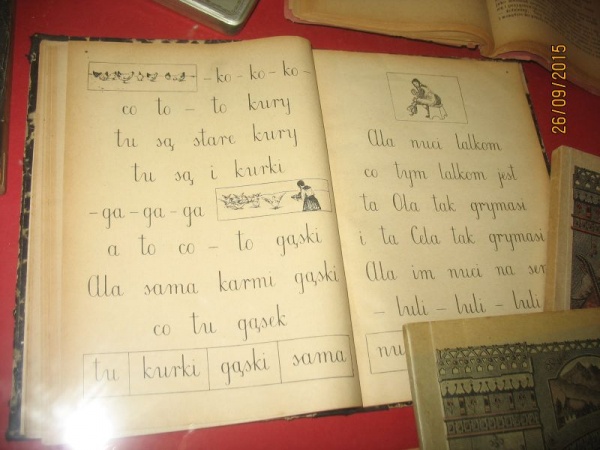 - ko - ko - ko -
co to - to kury
tu są stare kury
tu są i kurki
- ga - ga - ga
a to co - to gąski
Ala sama karmi gąski
co tu gąsek
tu kurki gąski sama
Ala nuci lalkom
co tym lalkom jest
ta Ola tak grymasi
i ta Cela tak grymasi
Ala im nuci na sen
- luli - luli - luli
26/09/2015